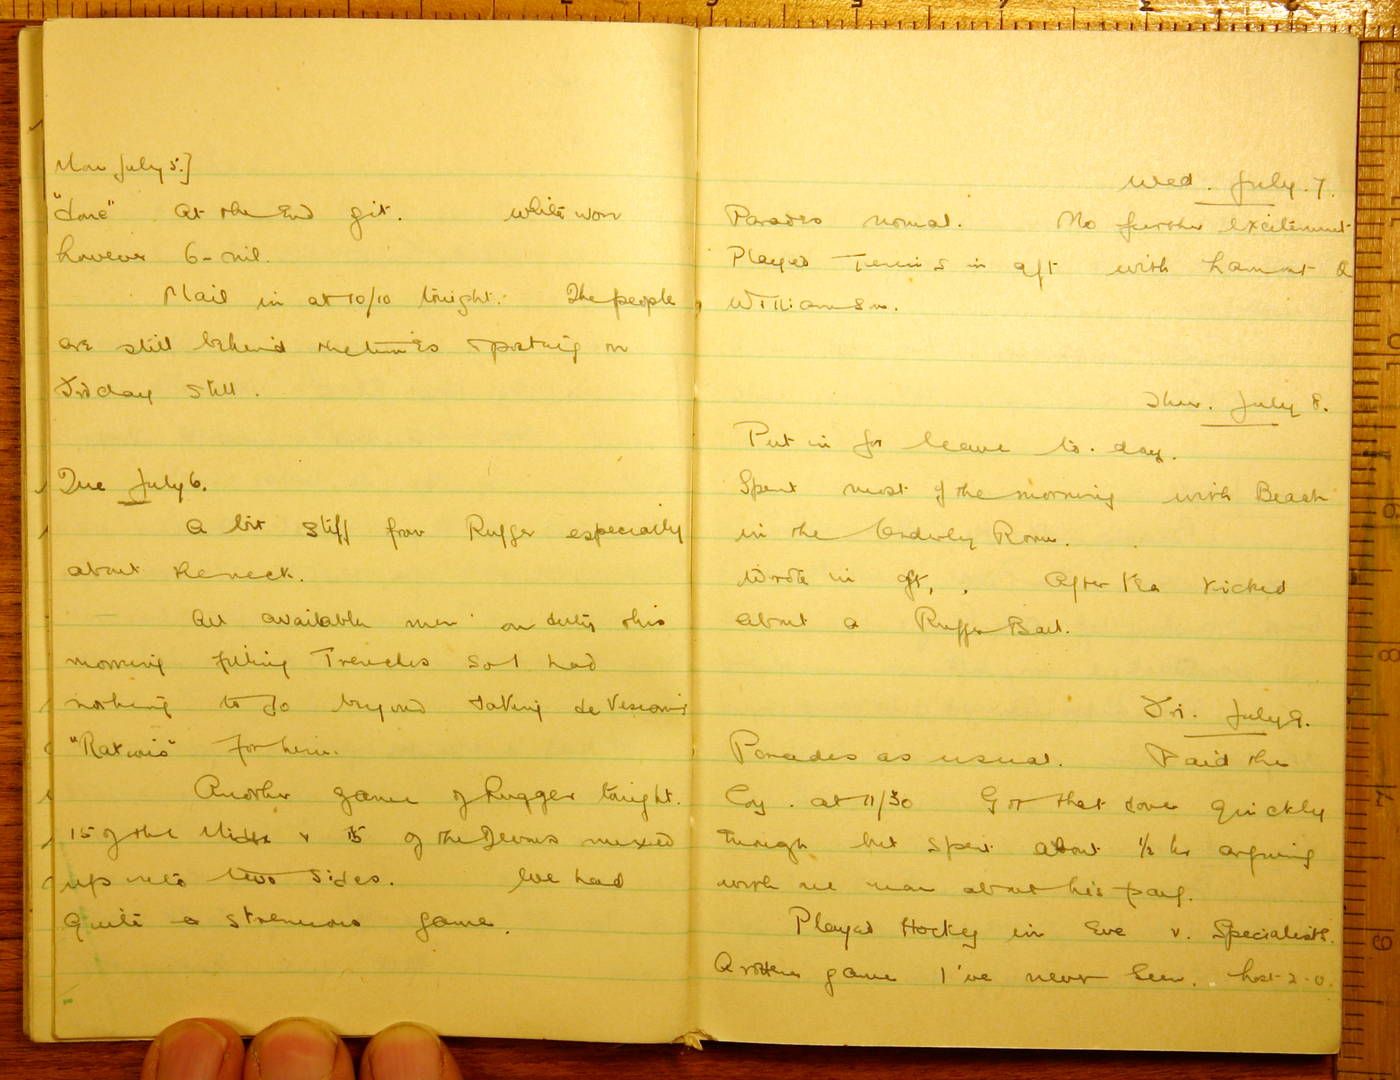 Mon July 5.]
"done" at the End git. Whites won
however 6-nil.
Mail in at 10/10 tonight. The people
are still behind the times & posting on
Friday still.
Tue July 6.
A bit stiff from Rugger especially
about the neck.
All available men on duties this
morning filling Trenches so I had
nothing to do beyond taking de Vesian's
"Rations" for him.
Another game of Rugger tonight.
15 of the Middx v 15 of the Devons mixed
up into two sides. We had
quite a strenuous game.
Wed. July. 7.
Parades normal. No further excitement
Played Tennis in aft with Lamont &
Williamson.
Thur. July 8.
Put in for leave to-day.
Spent most of the morning with Beach
in the Orderly Room.
Wrote in aft. After tea kicked
about a Rugger Ball.
Fri. July 9.
Parades as usual. Paid the
Coy. at 11/30 Got that done quickly
though but spent about ½ hr arguing
with one man about his pay.
Played Hockey in Eve v. Specialists.
A rottener game I've never seen. Lost 2-0.